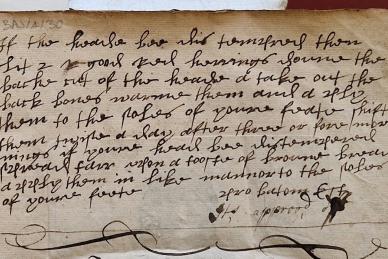 If the heade bee distempred then
slit 2 good Red herrings doune the
backe cut of the heade & take out the
back bones warme them and aply
them to the soles of youre feate shift
them twise a day after three or fore
mings if youre head bee distempered
spread farr upon a toste of broune bread
apply them in like mannor to the soles
of youre feete probatom Est
approved